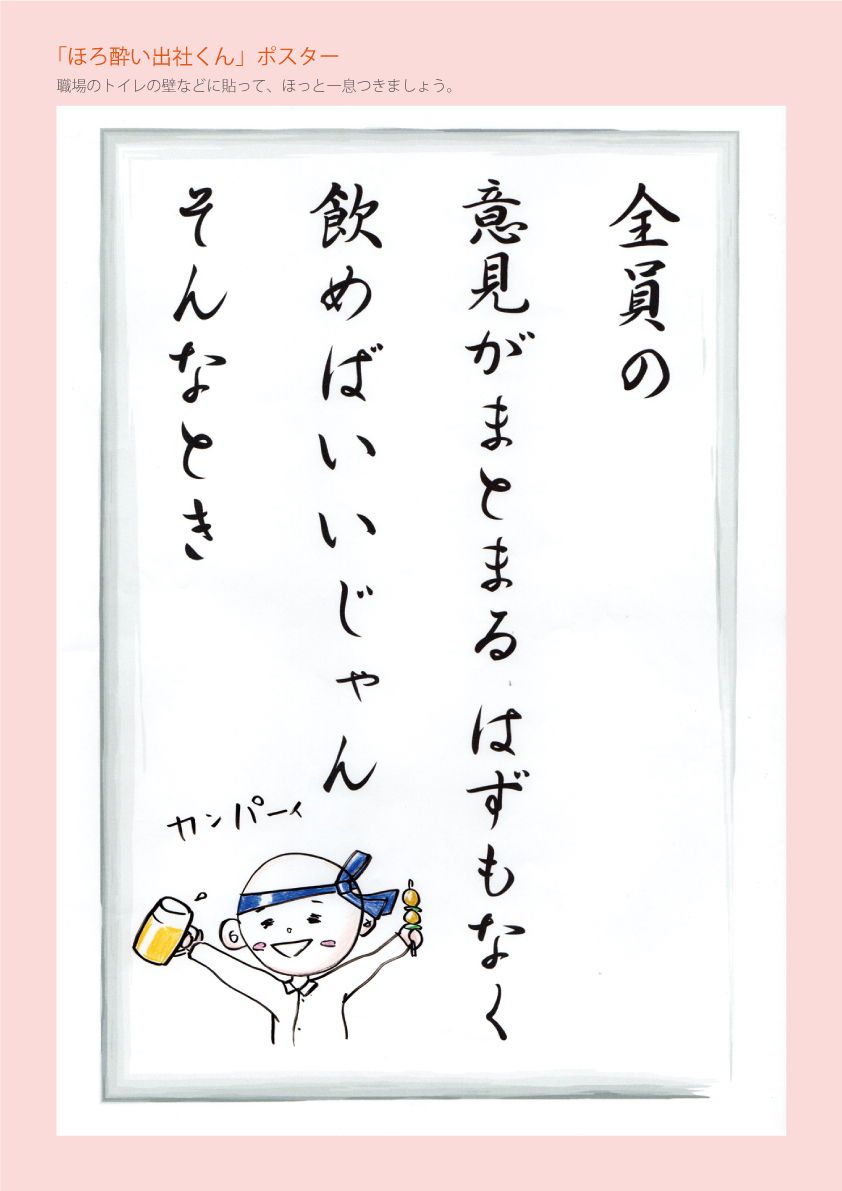 「ほろ酔い出社くん」ポスター
職場のトイレの壁などに貼って、ほっと一息つきましょう。
全員の
意見がまとまるはずもなく
飲めばいいじゃん
そんなとき
カンパーィ